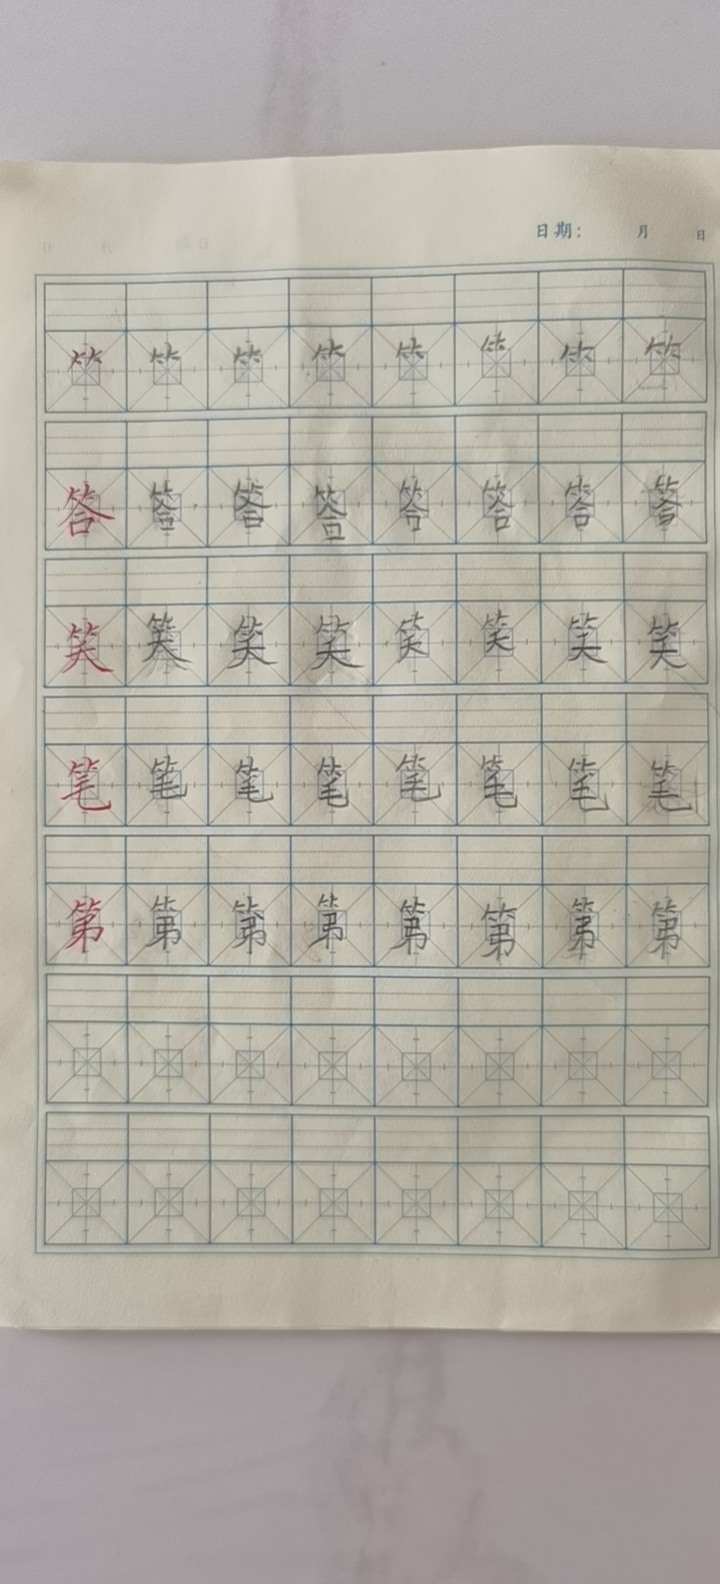 日期： 月 日
⺮ ⺮ ⺮ ⺮ ⺮ ⺮ ⺮ ⺮
答 答 答 答 答 答 答 答
笑 笑 笑 笑 笑 笑 笑 笑
笔 笔 笔 笔 笔 笔 笔 笔
第 第 第 第 第 第 第 第